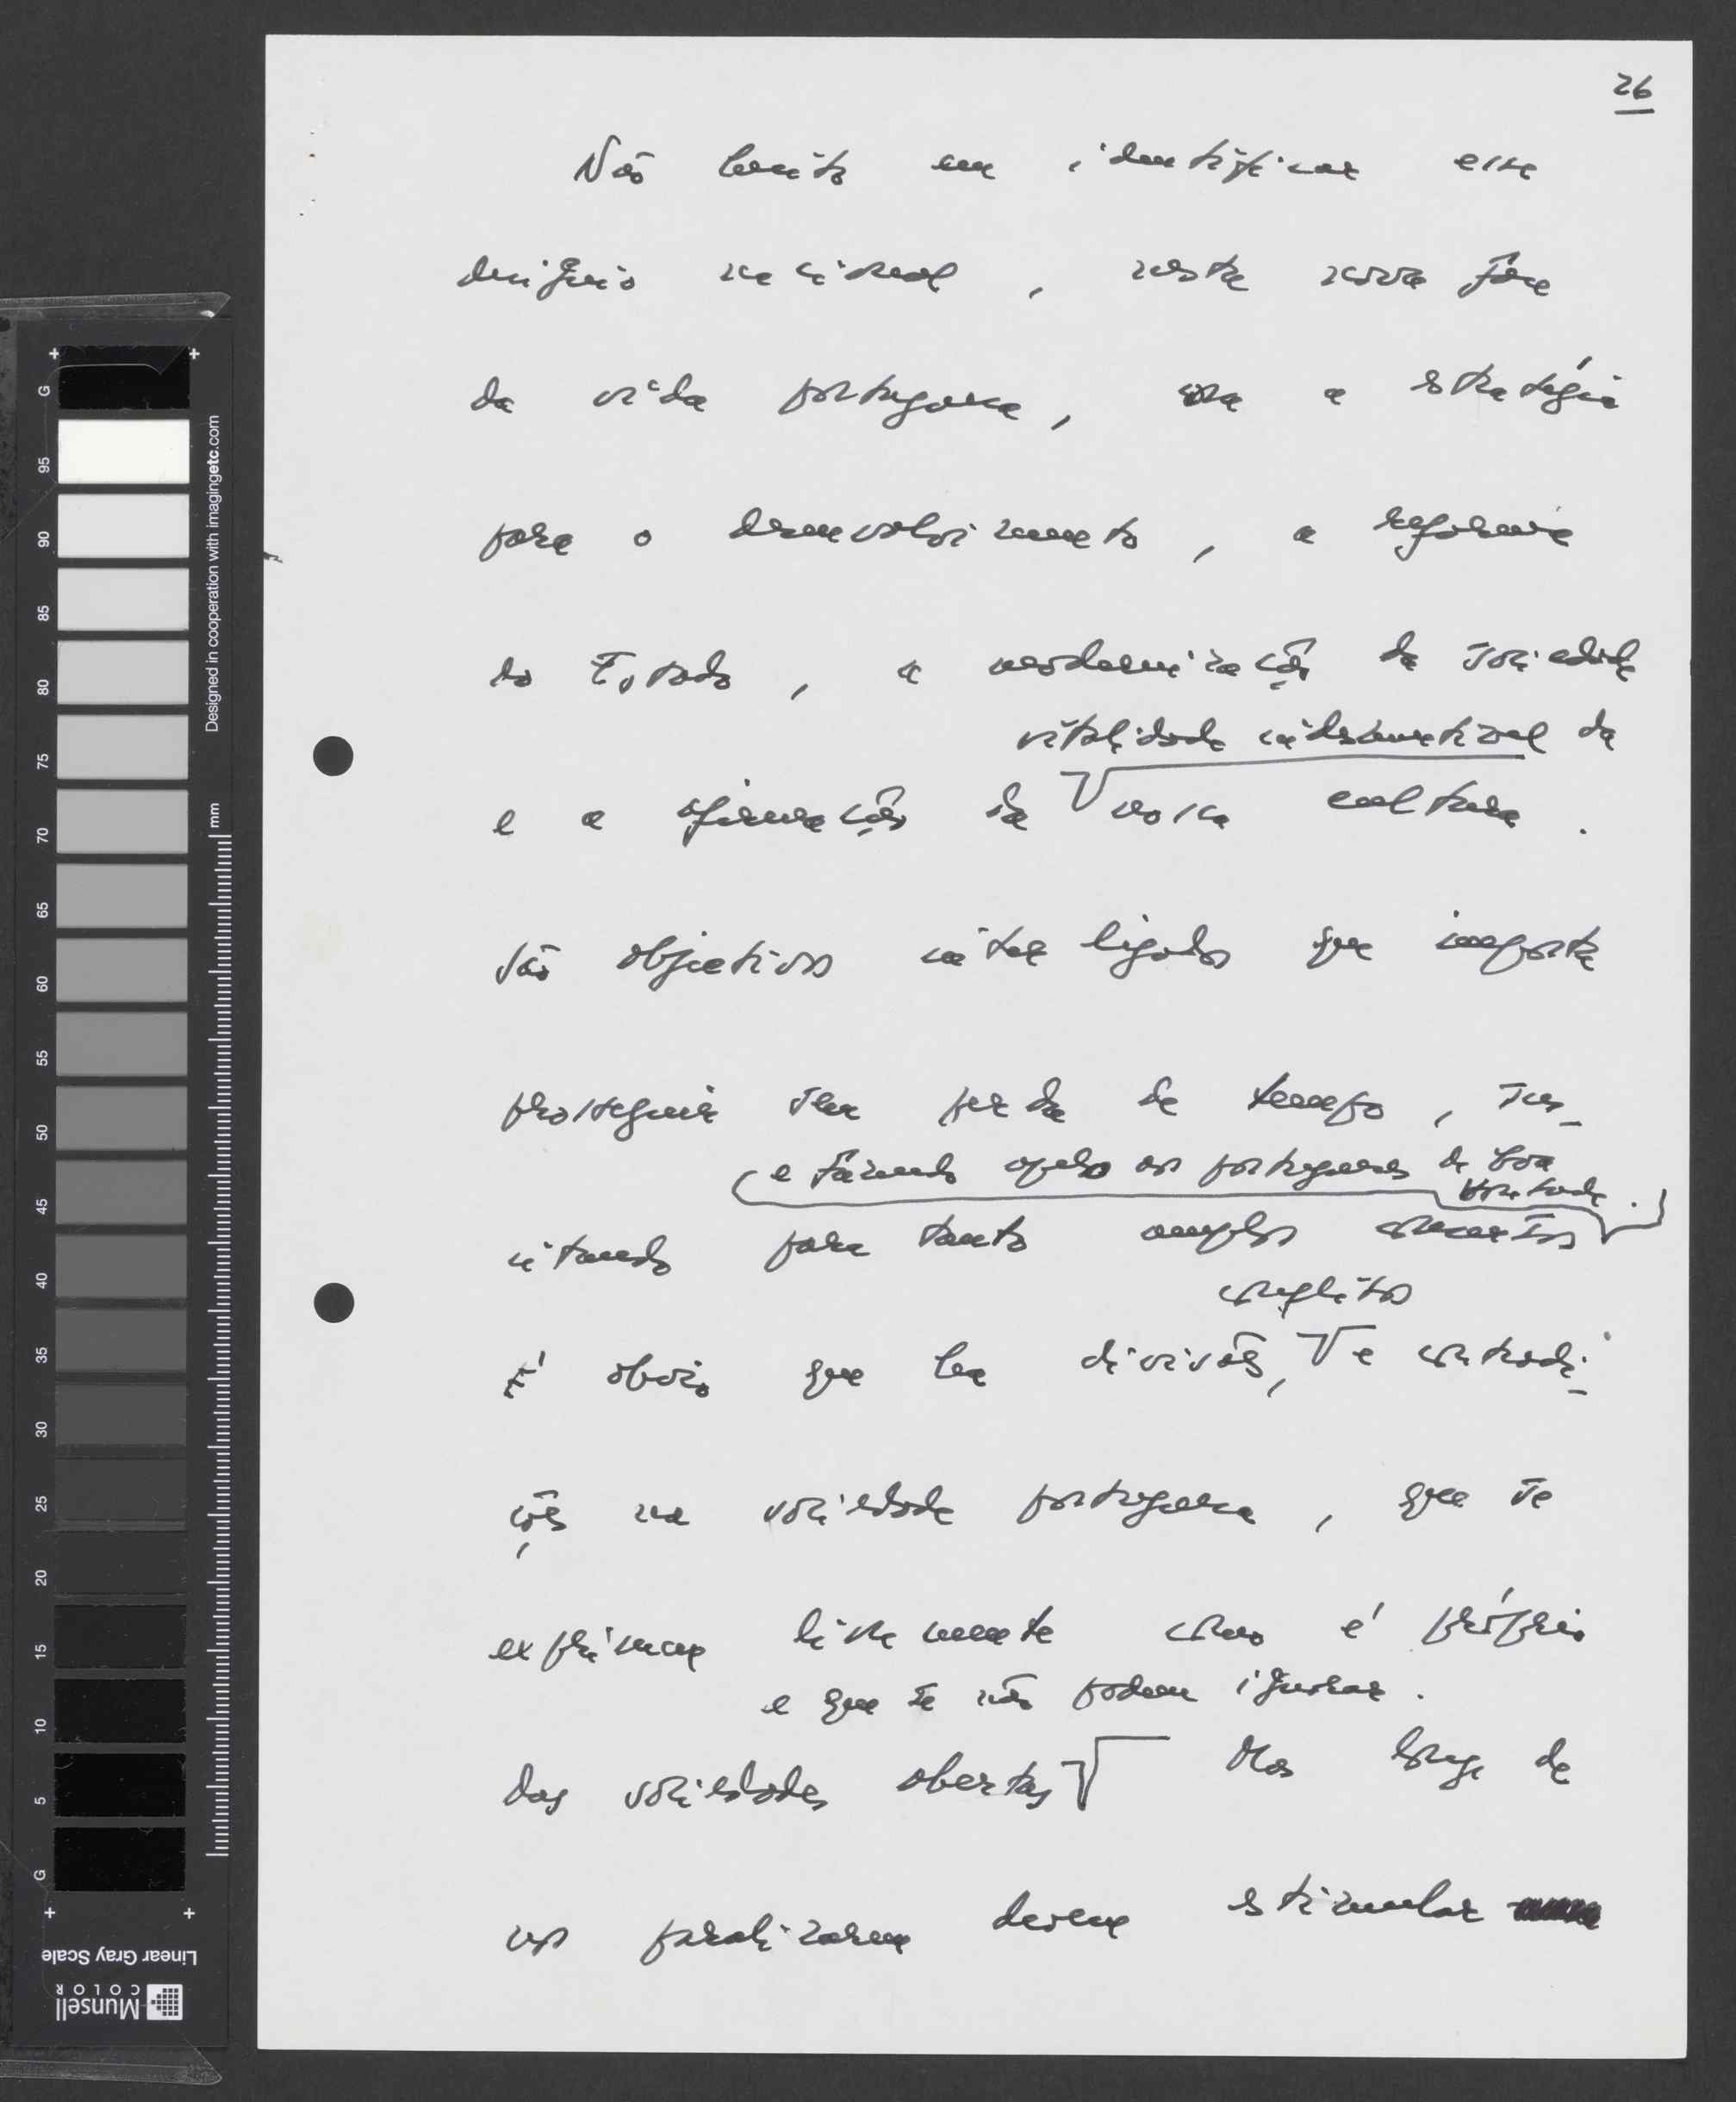 26
Não hesito em identificar esse
desígnio nacional, nesta nova fase
da vida portuguesa, com a estratégia
para o desenvolvimento, a reforma
do Estado, a modernização da sociedade
vitalidade indesmentível da
e a afirmação da nossa cultura.
São objectivos interligados que importa
prosseguir sem perda de tempo, sus-
e fazendo apelo aos portugueses de boa
vontade.
citando para tanto amplos consensos
conflitos
É óbvio que há divisões, e contradi-
ções na sociedade portuguesa, que se
exprimem livremente como é próprio
e que se não podem ignorar.
das sociedades abertas Mas longe de
nos paralizarem devem estimular
G 95 90 85 80 75 70 65 60 55 50 45 40 35 30 25 20 15 10 5 G
Designed in cooperation with imagingetc.com
mm
Linear Gray Scale
Munsell
COLOR